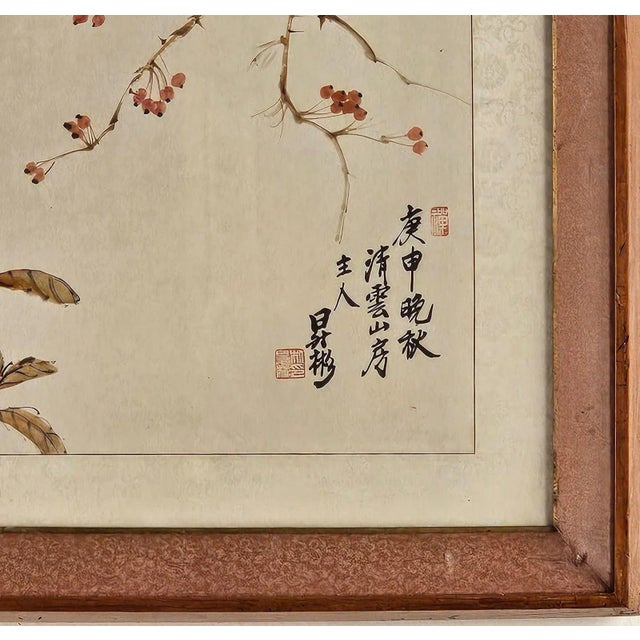 庚申晚秋
清雲山房
主人
昇彬